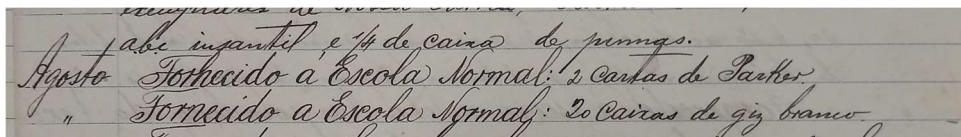 exemplares de
abc infantil, e 1/4 de caixa de pennas.
Agosto Fornecido á Escola Normal: 2 cartas de Parker.
" Fornecido a Escola Normal: 20 caixas de giz branco.